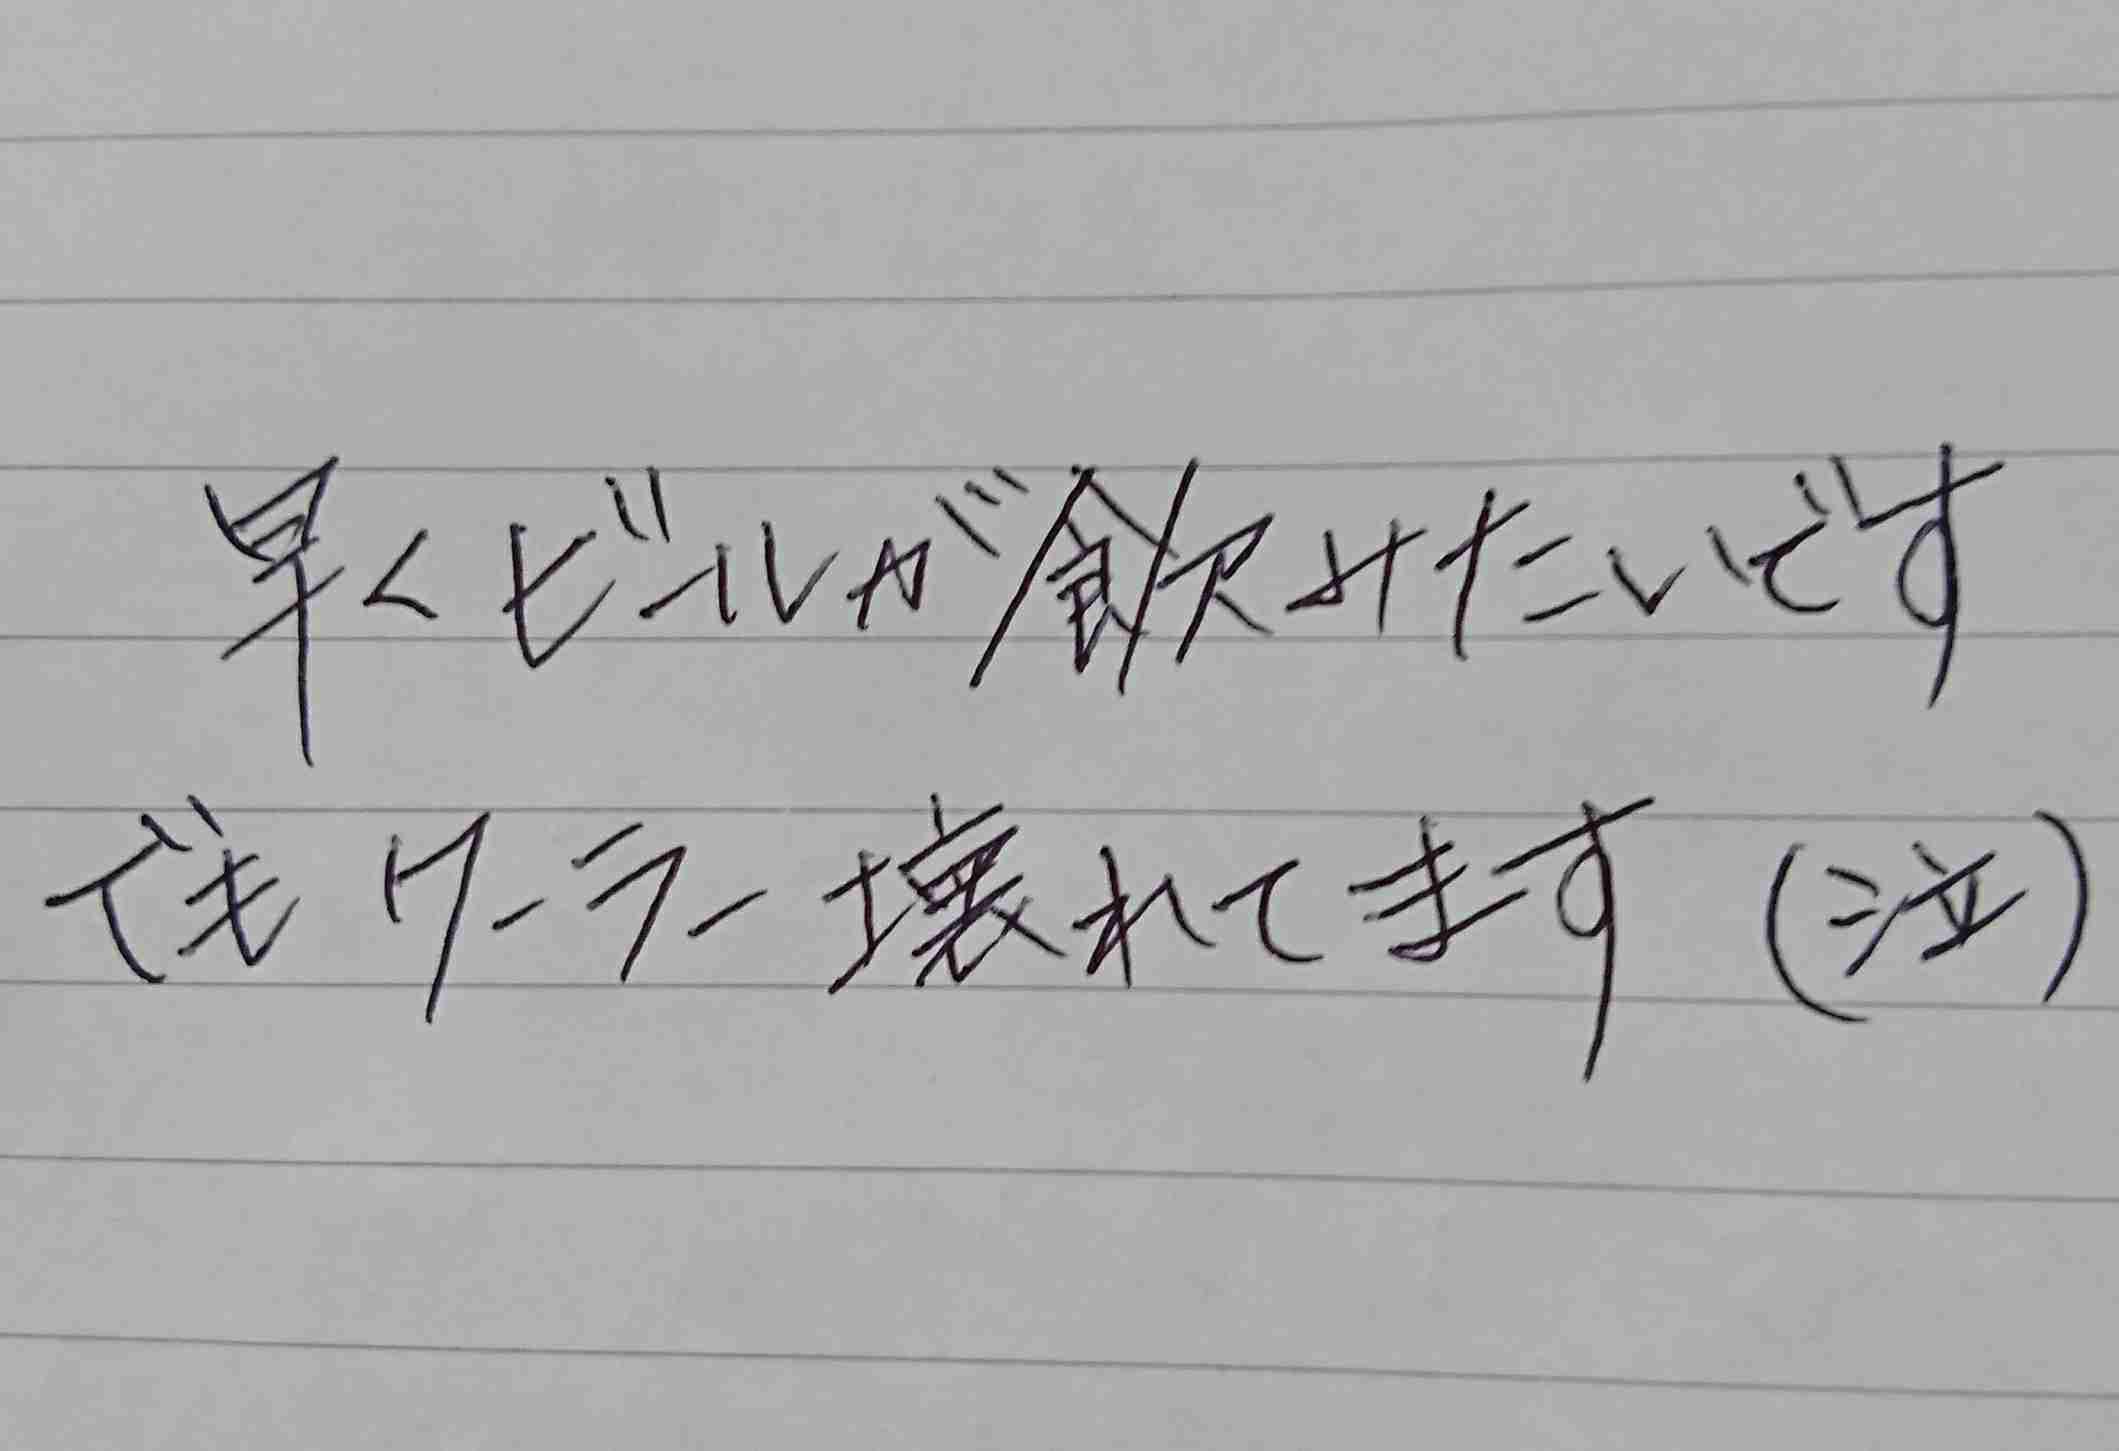 早くビールが飲みたいです
でもクーラー壊れてます(泣)